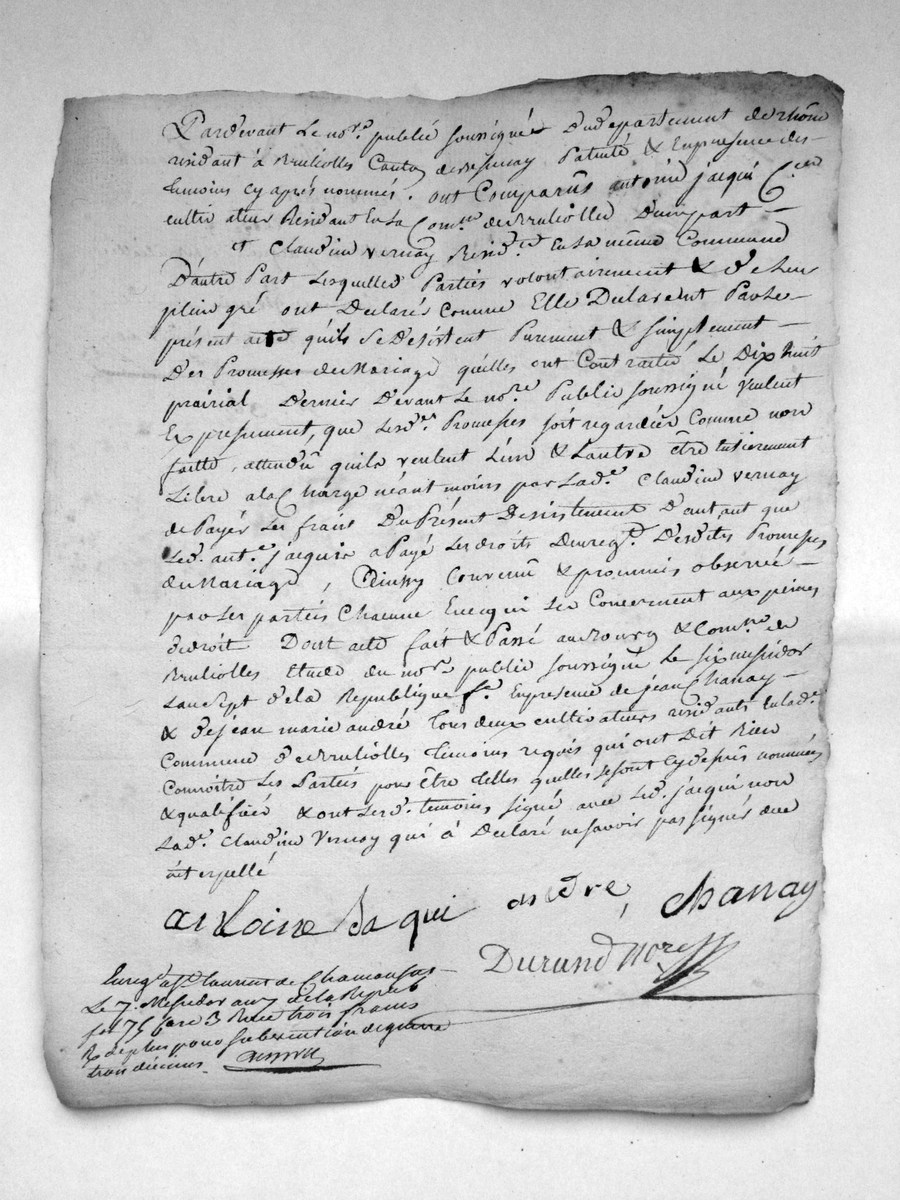 Pardevant Le nore. public soussigné Du département du rhône
residant à Brulliolles Canton de Patenté & En presence des
temoins cy après nommés. ont Comparûs antoine jacqui
cultivateur Residant En la Comne. de Brulliolles D'une part —
et Claudine vernay Residte. En la même Commune
D'autre Part Lesquelles Parties volontairement & de Leur
plein gré ont Declaré Comme Elle Declarent Par Le —
présent acte qu'ils se Désistent Purement & simplement —
Des Promesses de Mariage qu'elles ont Contracté Le Dix huit
prairial Dernier Devant Le nore. Public soussigné veulent
Expressement, que Lesd. Promesses soit regardées Comme non
faitte, attendû quils veulent L'un & L'autre être Entierement
Libre a la Charge néant moins par Lade. Claudine vernay
de Payér Les frais Du Présent Desistement D'autant que
Led. ante. jacqui a Payé Les droits Denregt. Desdites Promesses
de Mariage, Ainssy Convenû & promis observé —
par Les parties Chacune En ce qui Les Concernent aux peines
de droit Dont acte fait & Passé au Bourg & Comne. de
Brulliolles Etude du nore. public soussigné Le six messidor
L'an sept de la Republique fse. En presence de jean Chanay —
& de jean marie andré tous deux cultivateurs residants En lade.
Commune de Brulliolles temoins requis qui ont Dit Bien
Connoitre Les Parties pour être telles quelles se sont Cy devant nommées
& qualifiées & ont Lesd. temoins signé avec Led. jacqui non
Lade. Claudine Vernay qui à Declaré ne savoir pas signér de ce
interpellé
antoine Jaqui andre, chanay
Durand Nore
Enregt. a St. laurent de Chamousset —
Le 7. Messidor an 7 de la Repub
fo. 75 Case 3 Recu trois francs
& de plus pour subvention de guerre
trois décimes.